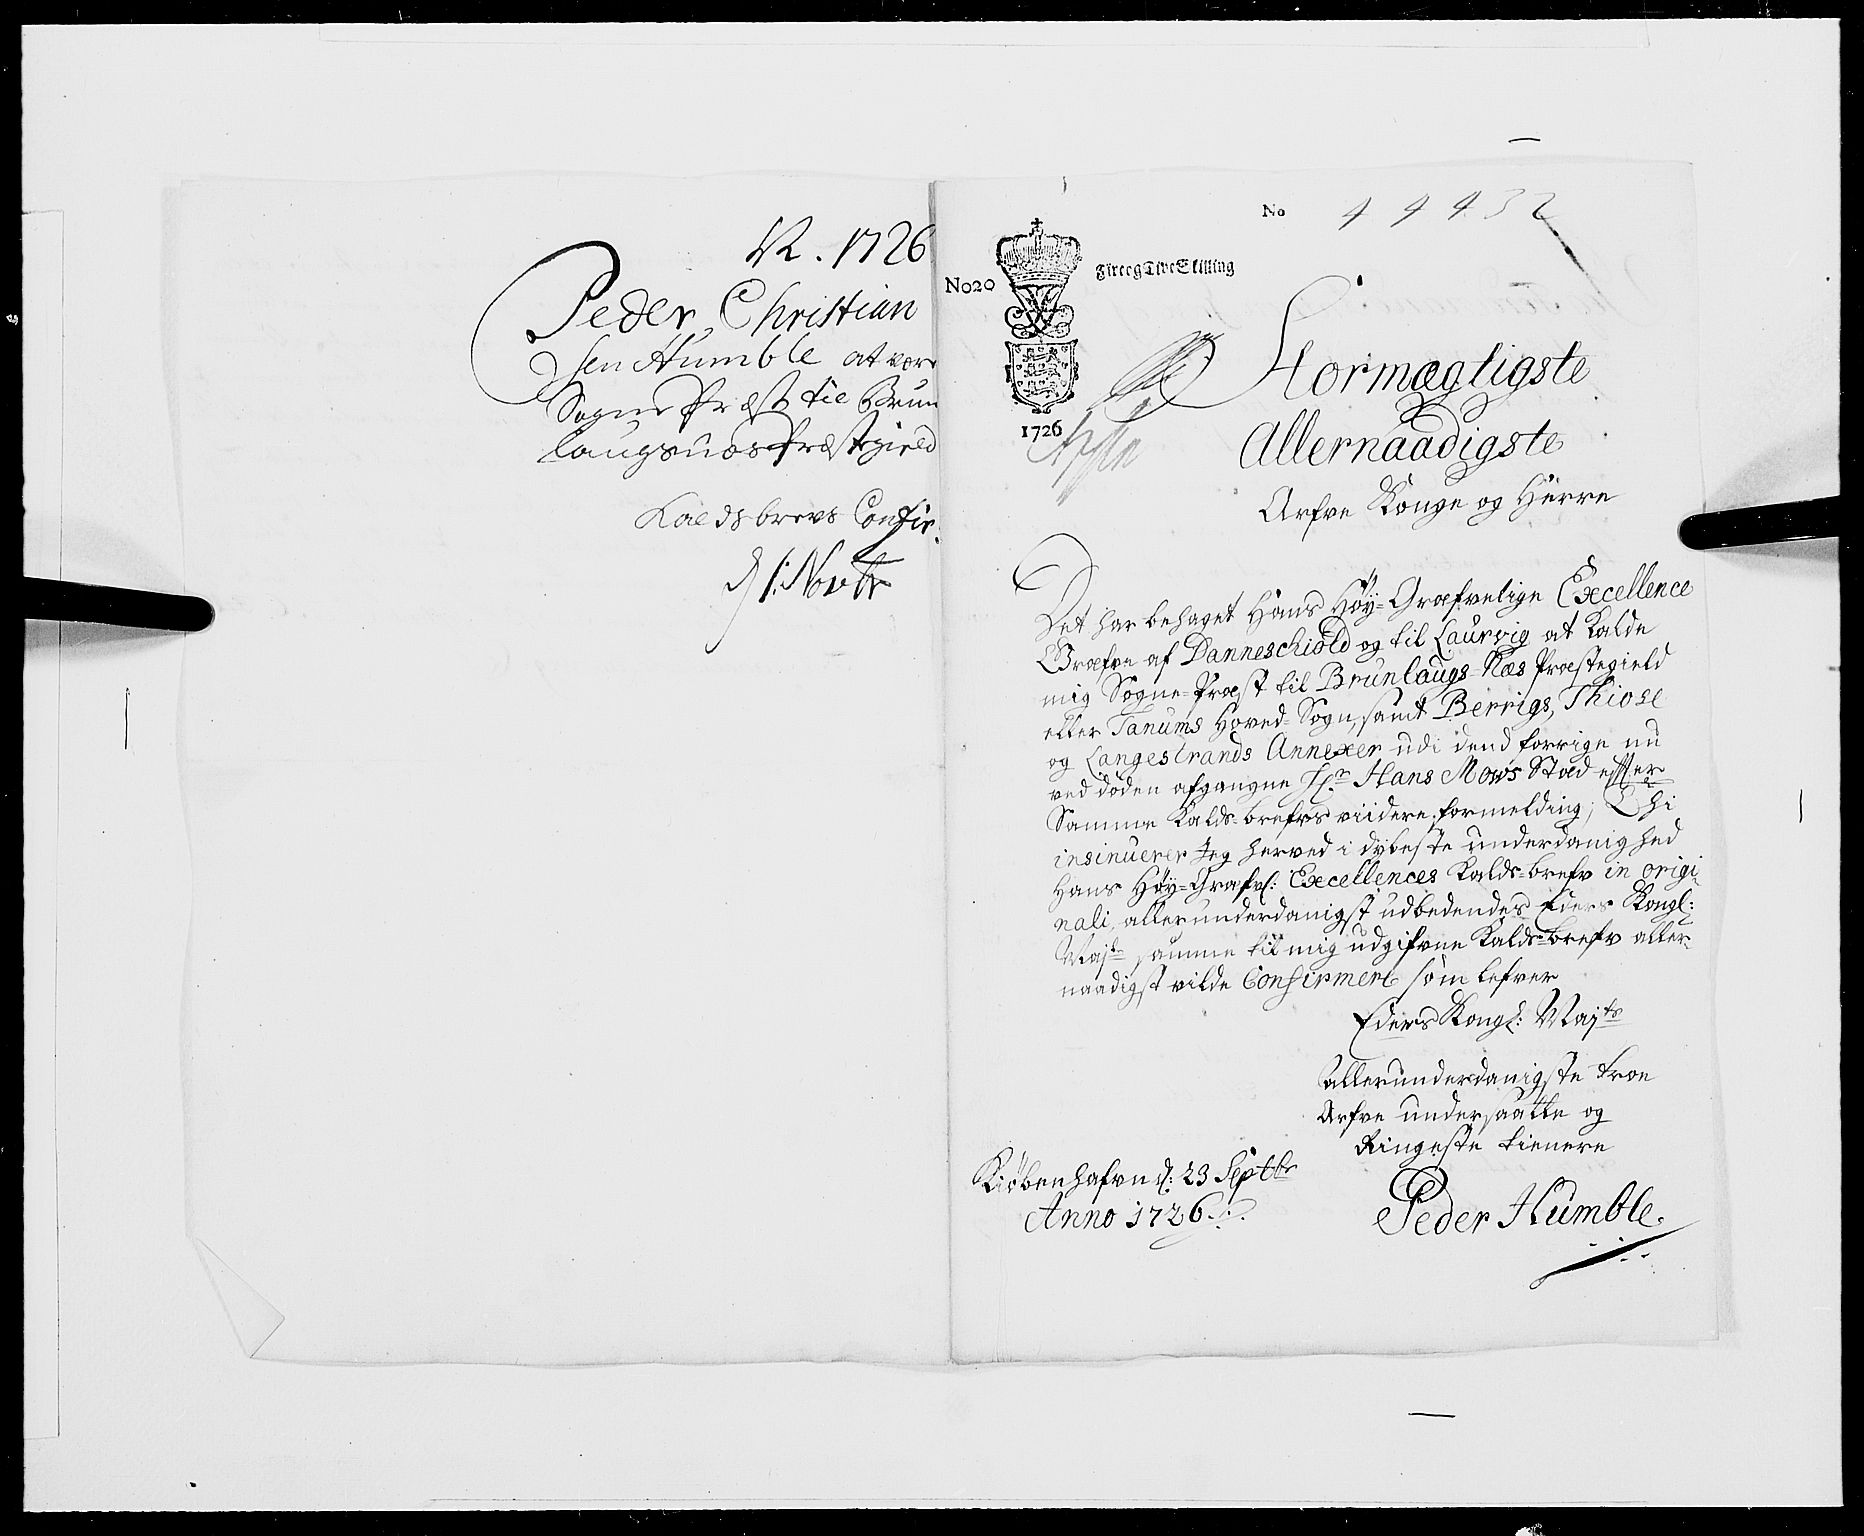 1726
Peder Christian
sen Humble at være
Sogne Præst til Brun
laugsnæs Præstegield
Kaldsbrevs Confir:
d 1. Novbr
No 4 4 4 3 2
No20
Fire og Tive Skilling
1726
Stormægtigste
Allernaadigste
Arfve Konge og Herre
Det har behaget Hans Høy-Grafvelige Excellence
Grafve af Danneschiold og til Laurvig at Kalde
mig Sogne-Præst til Brunlaugs-Næs Præstegield
eller Tanums Hoved-Sogn, samt Berrigs, Thiose
og Langestrands Annexer udi dend forrige nu
ved döden afgangne Hr. Hans Mows Stæd efter
Samme Kalds-brefvs viidere formelding; Thi
insinuerer Jeg herved i dybeste underdanighed
Hans Høy-Grafvl: Excellences Kalds-brefv in origi-
nali, allerunderdanigst udbedendes Eders Kongl:
Majts samme til mig udgifvne Kalds-brefv aller-
naadigst vilde Confirmere som lefver
Eders Kongl: Majts
Allerunderdanigste troe
Arfve undersaatte og
Ringeste tienere
Kiöbenhafvn d: 23 Septbr
Anno 1726
Peder Humble.